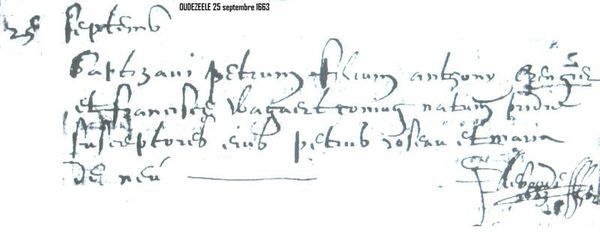 OUDEZEELE 25 septembre 1663
25 septemb
baptizavi petrum filium anthony
et franciscæ Wagaert coniug natum pridie
susceptores eius petrus roseau et maria
de neu